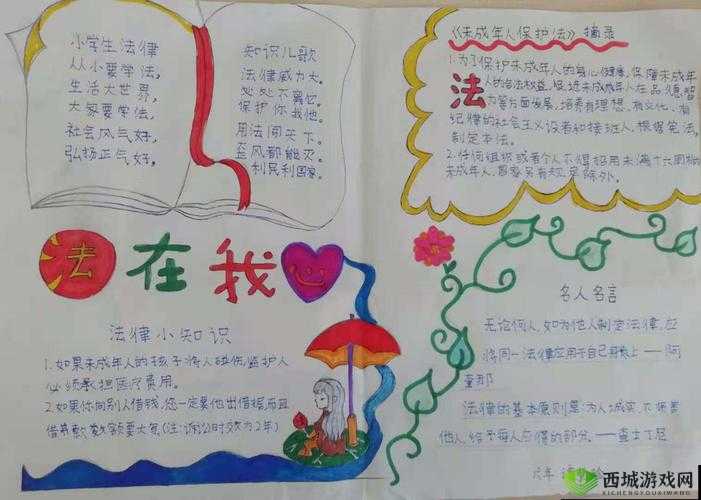 小学生法律
从小要学法,
生活大世界,
大家要学法,
社会风气好,
弘扬正气好,
知识儿歌
法律威力大,
处处不离它。
保护你我他。
用法闯天下。
歪风都能灭。
利民利国家。
《未成年人保护法》摘录
1.为了保护未成年人的身心健康,保障未成年
人的合法权益,促进未成年人在品德智
力等方面发展,培养有理想、有文化、有
纪律的社会主义设者和接班人,根据宪法,
制定本法。
法
2.任何组织或者个人不得招用未满十六周
未成年人,国家另有规定除外。
法在我心
法律小知识
1.如果未成年人的孩子将人砸伤,监护人
必须承担医疗费用。
2.如果你向别人借钱,您一定要他出借据,而且
借书数字要大写(注:诉讼时效为2年)
名人名言
无论何人,如为他人制定法律,应
将同一法律应用于自己身上——阿
奎那
法律的基本原则是:为人诚实,不损害
他人,给予每人应得的部分。——查士丁尼
六年
西城游戏网
XICHENGYOUXIWANG